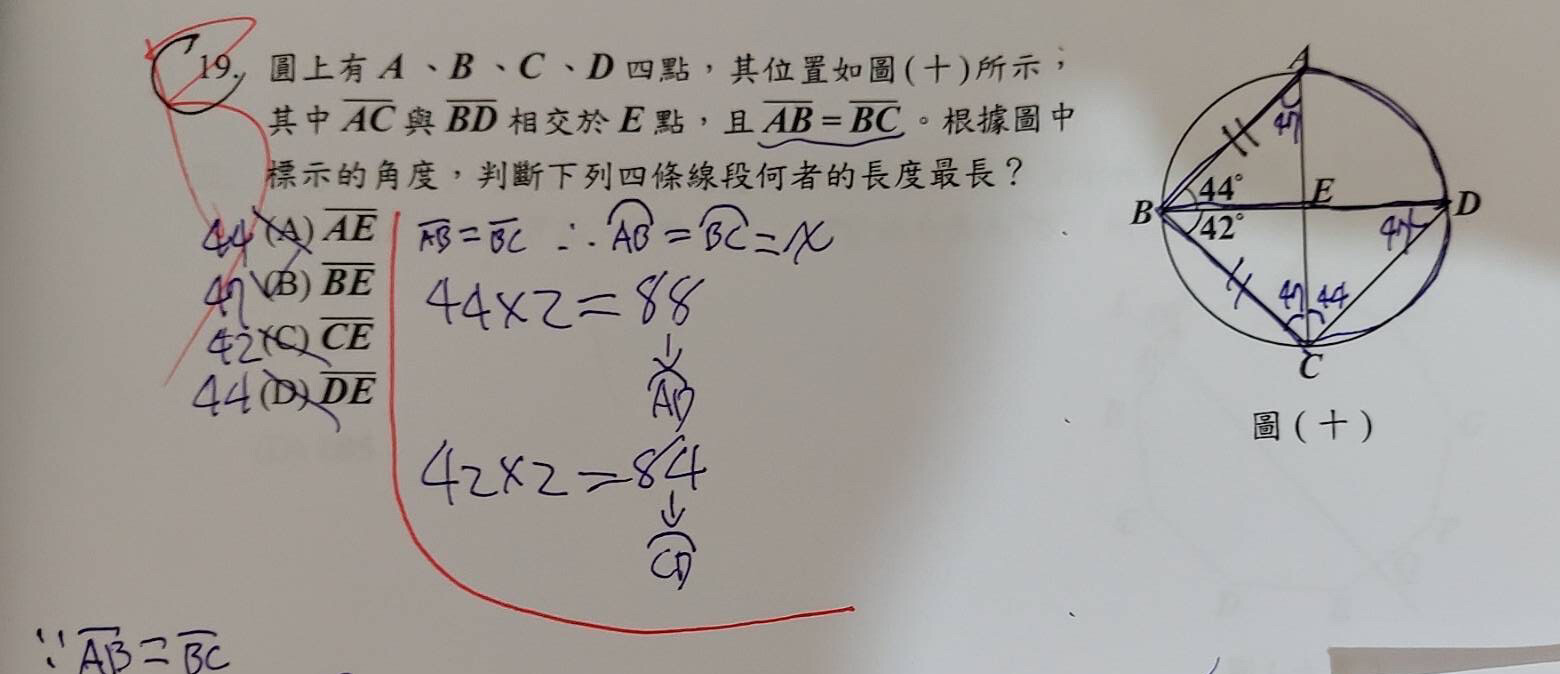 19. 圓上有 A、B、C、D 四點，其位置如圖(十)所示，
其中 AC 與 BD 相交於 E 點，且 AB = BC。根據圖中
標示的角度，判斷下列四條線段何者的長度最長？
44 (A) AE
47 (B) BE
42 (C) CE
44 (D) DE
AB = BC ∴ AB = BC = x
44×2=88
↓
AD
42×2=84
↓
CD
∵ AB = BC
A
47
44°
E
B
D
42°
47
47 44
C
圖(十)